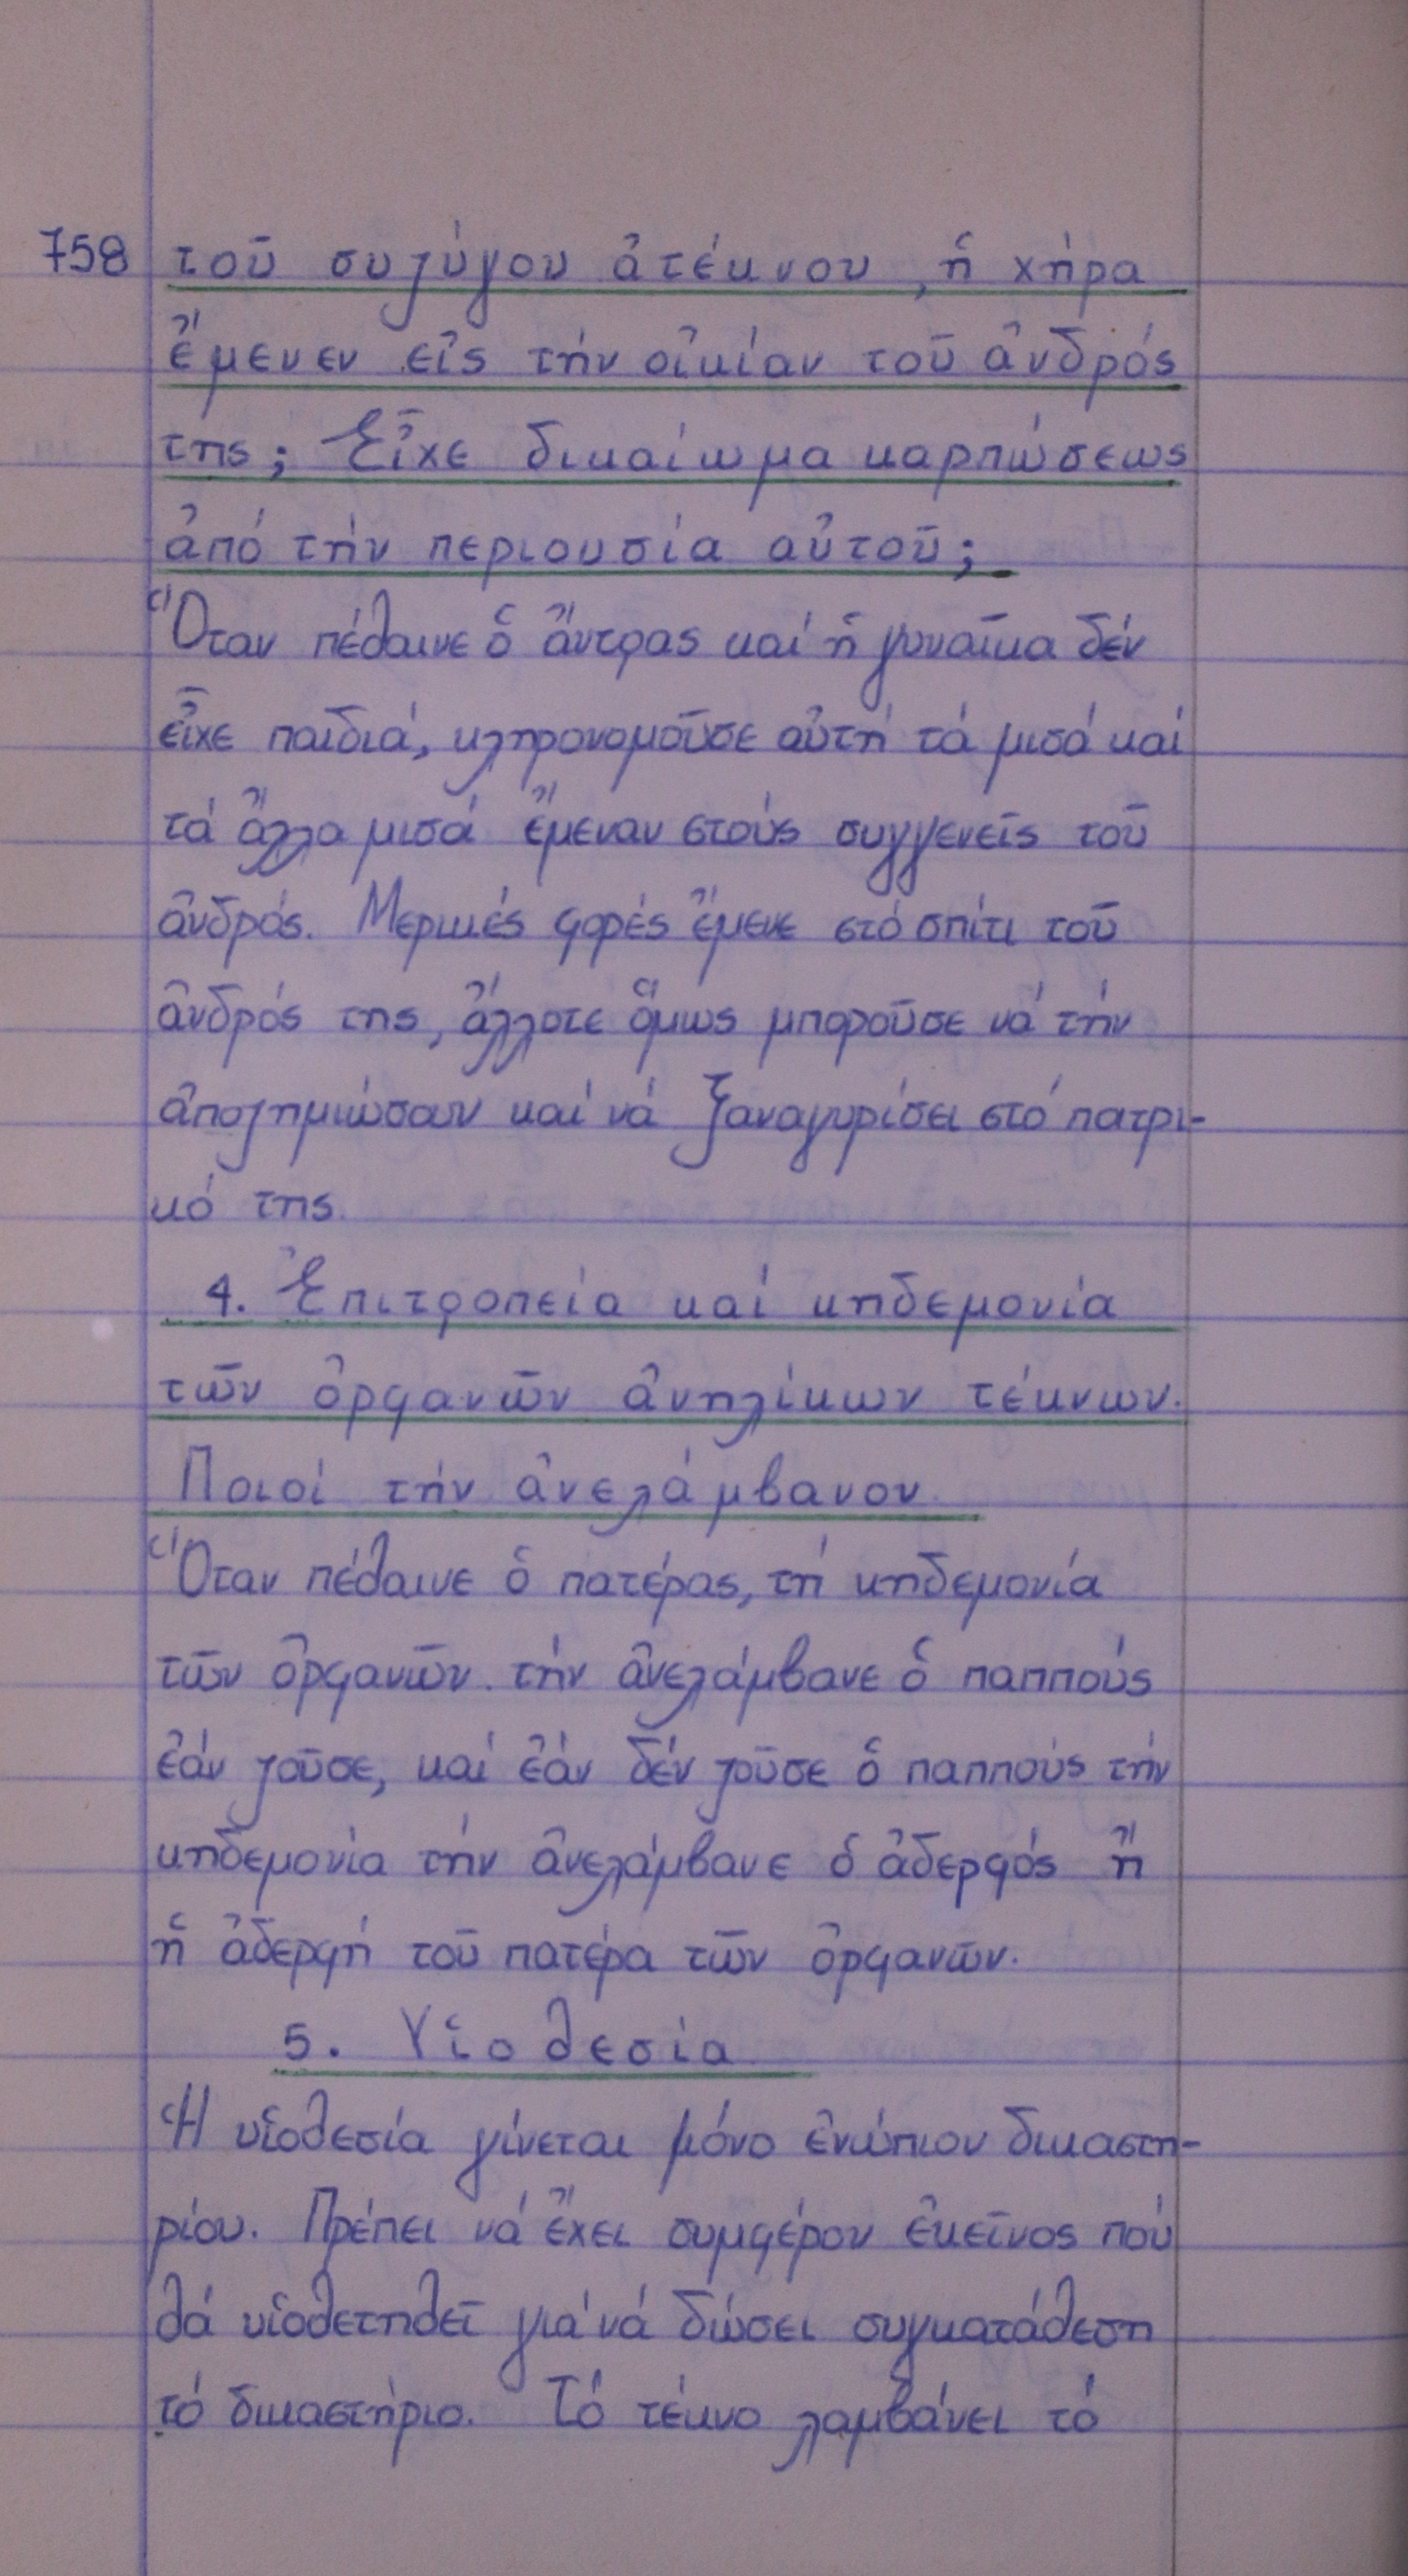 758 τοῦ συζύγου ἀτέκνου, ἡ χήρα
ἔμενεν εἰς τήν οἰκίαν τοῦ ἀνδρός
της; Εἶχε δικαίωμα καρπώσεως
ἀπό τήν περιουσία αὐτοῦ;
Ὅταν πέθαινε ὁ ἄντρας καί ἡ γυναῖκα δέν
εἶχε παιδιά, κληρονομοῦσε αὐτή τά μισά καί
τά ἄλλα μισά ἔμεναν στούς συγγενεῖς τοῦ
ἀνδρός. Μερικές φορές ἔμενε στό σπίτι τοῦ
ἀνδρός της, ἄλλοτε ὅμως μποροῦσε νά τήν
ἀποζημιώσουν καί νά ξαναγυρίσει στό πατρι-
κό της.
4. Ἐπιτροπεία καί κηδεμονία
τῶν ὀρφανῶν ἀνηλίκων τέκνων.
Ποιοί τήν ἀνελάμβανον
Ὅταν πέθαινε ὁ πατέρας, τή κηδεμονία
τῶν ὀρφανῶν τήν ἀνελάμβανε ὁ παππούς
ἐάν ζοῦσε, καί ἐάν δέν ζοῦσε ὁ παππούς τήν
κηδεμονία τήν ἀνελάμβανε ὁ ἀδερφός ἤ
ἡ ἀδερφή τοῦ πατέρα τῶν ὀρφανῶν.
5. Υἱοθεσία
Ἡ υἱοθεσία γίνεται μόνο ἐνώπιον δικαστη-
ρίου. Πρέπει νά ἔχει συμφέρον ἐκεῖνος πού
θά υἱοθετηθεῖ γιά νά δώσει συγκατάθεση
τό δικαστήριο. Τό τέκνο λαμβάνει τό